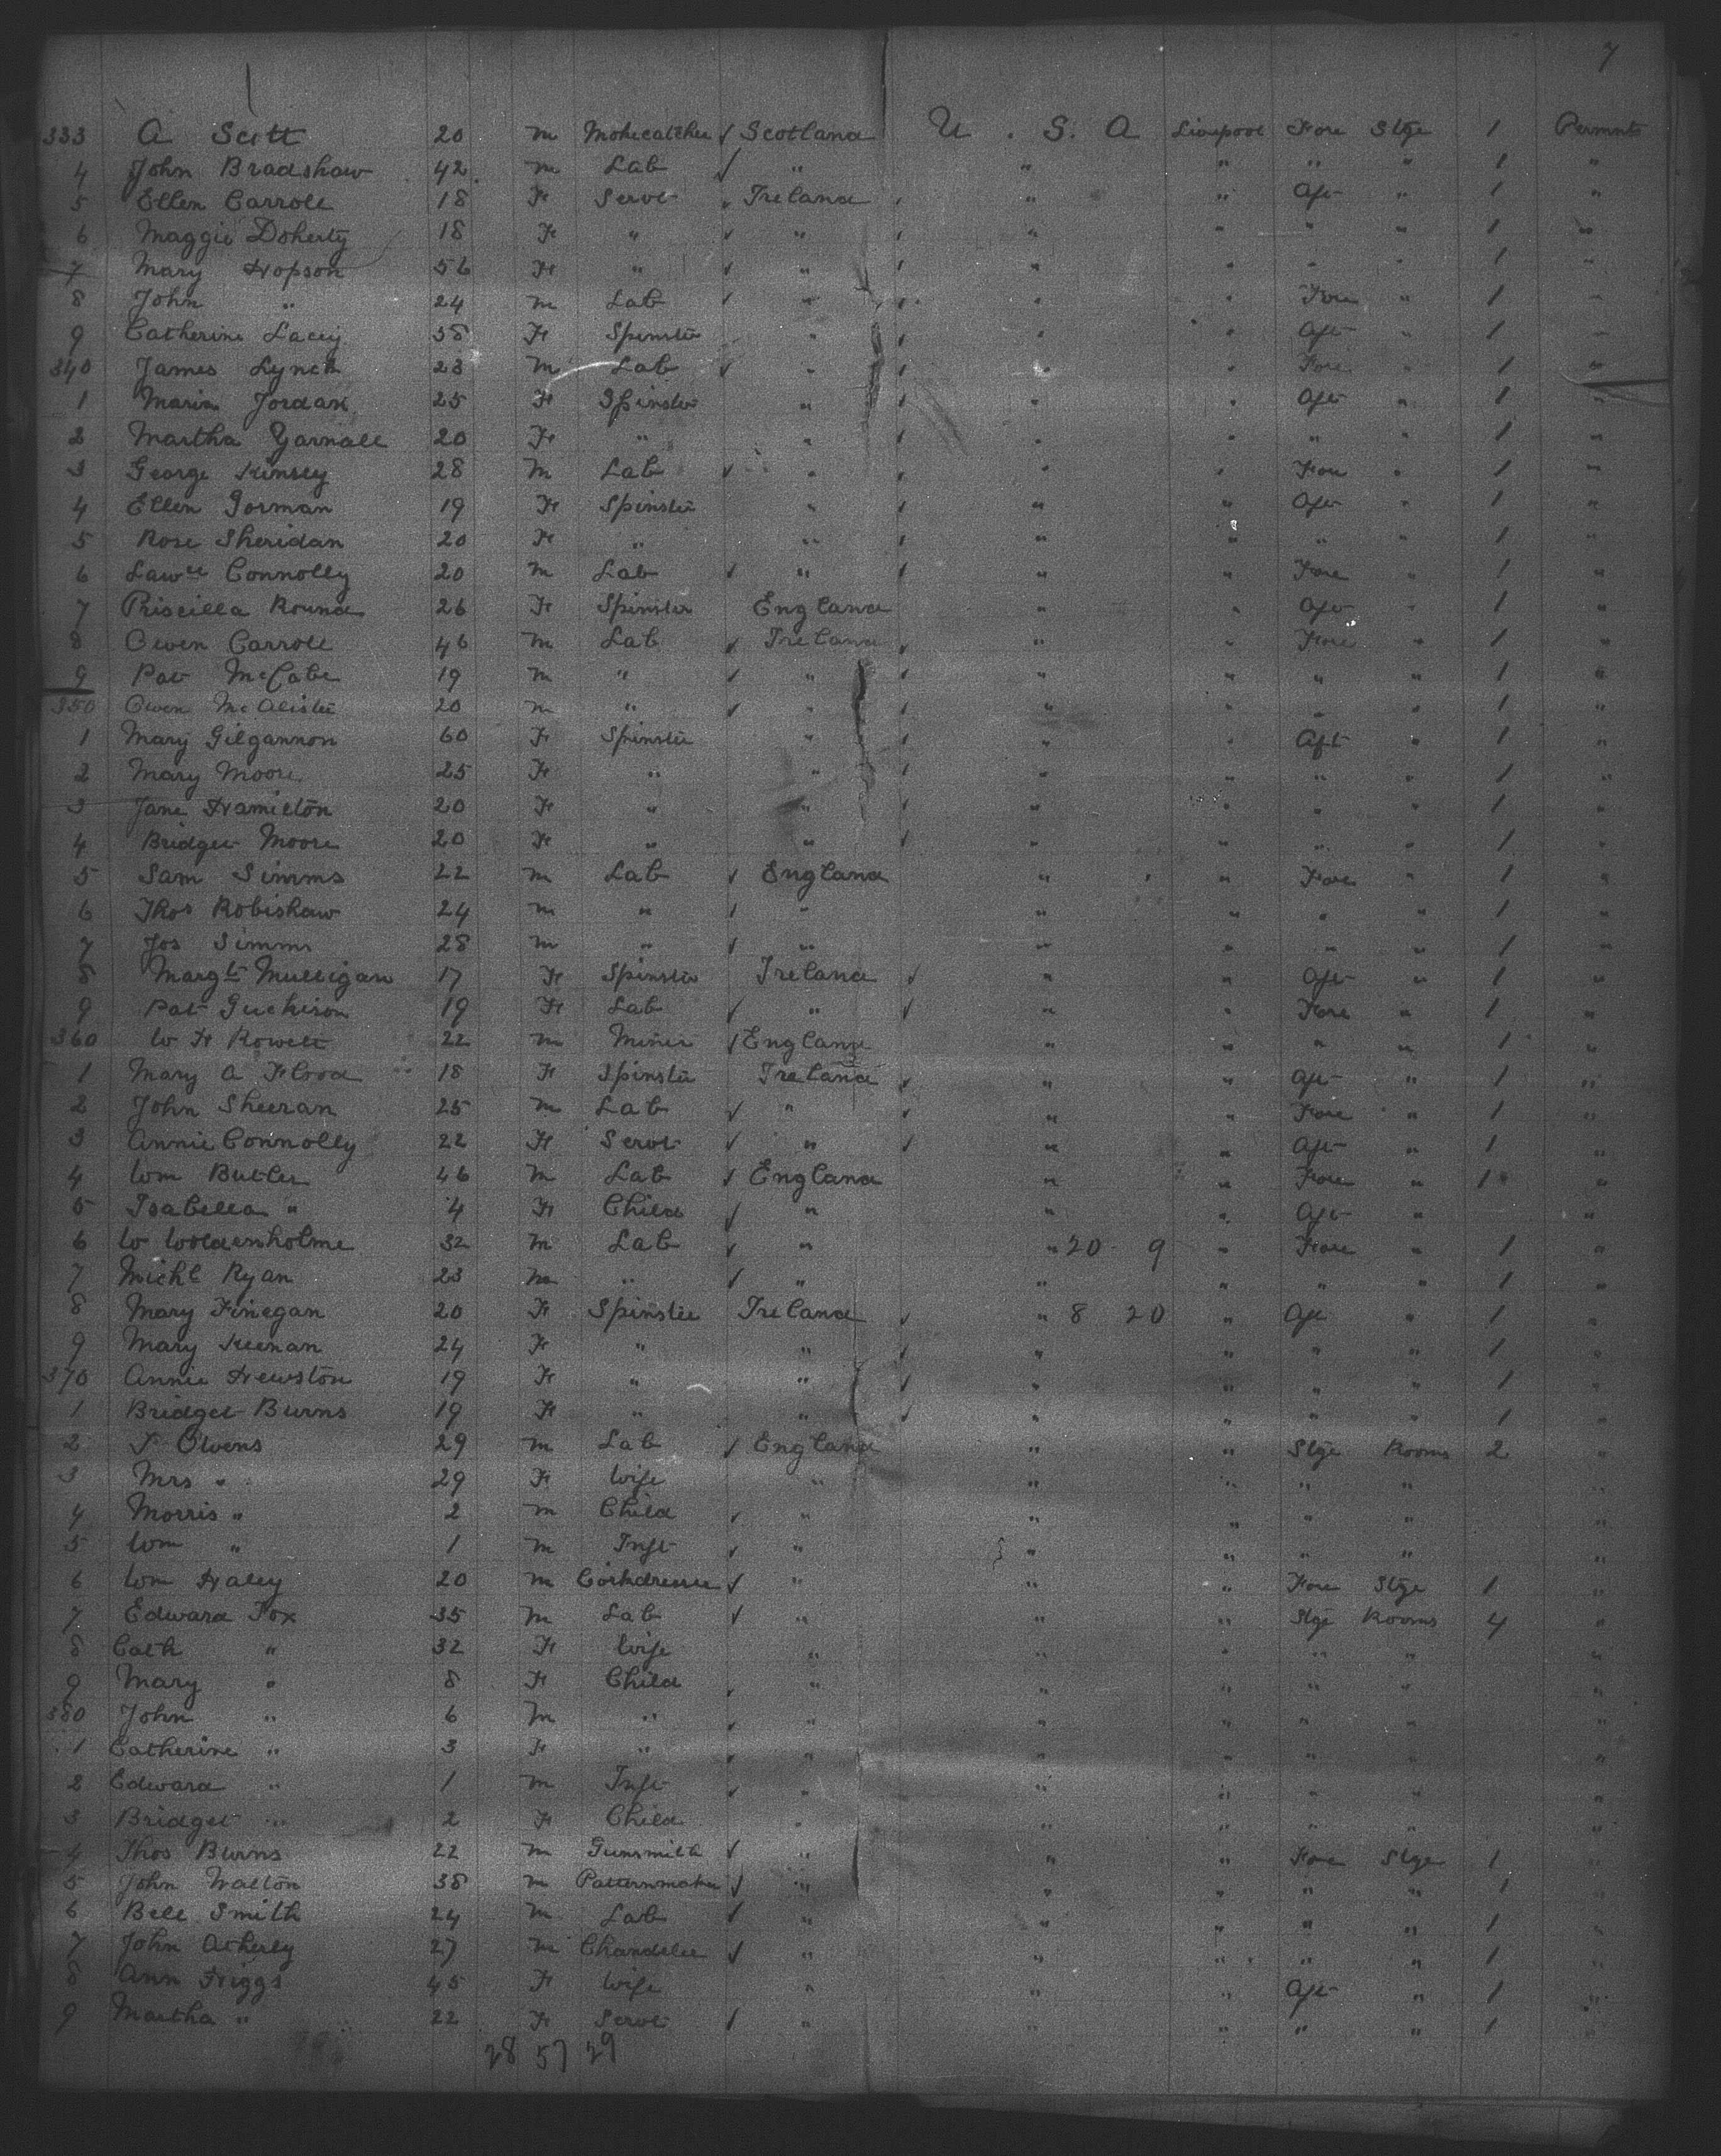 7
333 A Scott 20 m Molecatcher ✓ Scotland U . S . A Liverpool Fore Stge 1 Permnts
4 John Bradshaw 42 m Lab ✓ " " " " " 1 "
5 Ellen Carroll 18 F Servt " Ireland " " Aft " 1 "
6 Maggie Doherty 18 F " ✓ " " " " " 1 "
7 Mary Hopson 56 F " ✓ " " " " " 1 "
8 John " 24 m Lab ✓ " " " Fore " 1 "
9 Catherine Lacey 38 F Spinster " " " Aft " 1 "
340 James Lynch 23 m Lab ✓ " " " Fore " 1 "
1 Maria Jordan 25 F Spinster " " " Aft " 1 "
2 Martha Yarnall 20 F " " " " " " 1 "
3 George Kinsey 28 m Lab ✓ " " " Fore " 1 "
4 Ellen Gorman 19 F Spinster " " " Aft " 1 "
5 Rose Sheridan 20 F " " " " " " 1 "
6 Lawce Connolly 20 m Lab ✓ " " " Fore " 1 "
7 Priscilla Round 26 F Spinster England " " Aft " 1 "
8 Owen Carroll 46 m Lab ✓ Ireland " " Fore " 1 "
9 Pat McCabe 19 m " ✓ " " " " " 1 "
350 Owen McAlister 20 m " ✓ " " " " " 1 "
1 Mary Gilgannon 60 F Spinster " " " Aft " 1 "
2 Mary Moore 25 F " " " " " " 1 "
3 Jane Hamilton 20 F " " " " " " 1 "
4 Bridget Moore 20 F " " " " " " 1 "
5 Sam Simms 22 m Lab ✓ England " " Fore " 1 "
6 Thos Robishaw 24 m " ✓ " " " " " 1 "
7 Jos Simms 28 m " ✓ " " " " " 1 "
8 Margt Mulligan 17 F Spinster Ireland ✓ " " Aft " 1 "
9 Pat 19 F Lab ✓ " ✓ " " Fore " 1 "
360 W H Rowett 22 m Miner ✓ England " " " " 1 "
1 Mary A Flood 18 F Spinster Ireland ✓ " " Aft " 1 "
2 John Sheeran 25 m Lab ✓ " ✓ " " Fore " 1 "
3 Annie Connolly 22 F Servt ✓ " ✓ " " Aft " 1 "
4 Wm Butler 46 m Lab ✓ England " " Fore " 1 "
5 Isabella " 4 F Child ✓ " " " Aft " "
6 W Woldenholme 32 m Lab ✓ " " 20 9 " Fore " 1 "
7 Michl Ryan 23 m " ✓ " " " " " 1 "
8 Mary Finegan 20 F Spinster Ireland ✓ " 8 20 " Aft " 1 "
9 Mary Keenan 24 F " " ✓ " " " " 1 "
370 Annie Hewston 19 F " " ✓ " " " " 1 "
1 Bridget Burns 19 F " " ✓ " " " " 1 "
2 Owens 29 m Lab ✓ England " " Stge Rooms 2 "
3 Mrs " 29 F Wife " " " " " "
4 Morris " 2 m Child ✓ " " " " " "
5 Wm " 1 m Inft ✓ " " " " " "
6 Wm Haley 20 m Corkdresser ✓ " " " Fore Stge 1 "
7 Edward Fox 35 m Lab ✓ " " " Stge Rooms 4 "
8 Cath " 32 F Wife " " " " " "
9 Mary " 8 F Child ✓ " " " " " "
380 John " 6 m " ✓ " " " " " "
1 Catherine " 3 F " ✓ " " " " " "
2 Edward " 1 m Inft ✓ " " " " " "
3 Bridget " 2 F Child " " " " " "
4 Thos Burns 22 m Gunsmith ✓ " " " Fore Stge 1 "
5 John Walton 38 m Patternmaker ✓ " " " " " 1 "
6 Bell Smith 24 m Lab ✓ " " " " " 1 "
7 John Atherly 27 m Chandler ✓ " " " " " 1 "
8 Ann Higgs 45 F Wife " " " Aft " 1 "
9 Martha " 22 F Servt ✓ " " " " " 1 "
28 57 29